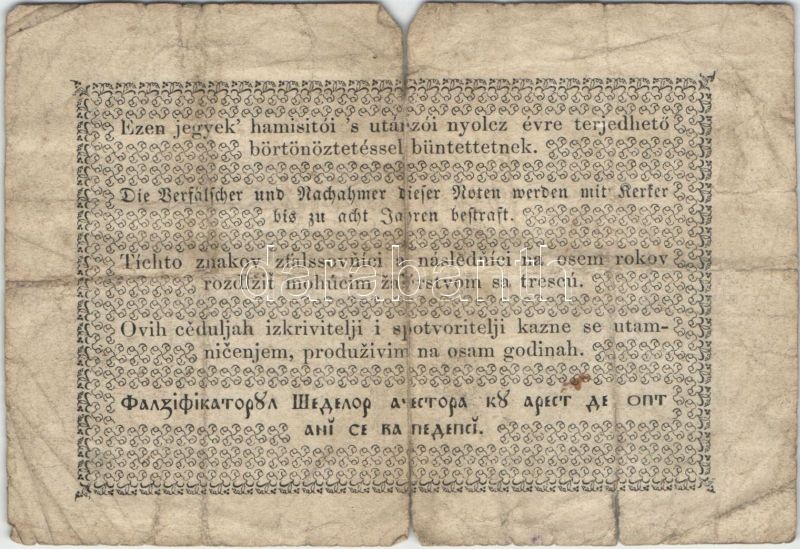 Ezen jegyek' hamisitói 's utánzói nyolcz évre terjedhető
börtönöztetéssel büntettetnek.
Die Verfälscher und Nachahmer dieser Noten werden mit Kerker
bis zu acht Jahren bestraft.
Tichto znakov zfalssovňici a následníci na osem rokov
rozdžiť mohúcim žalárstvom sa trescú.
Ovih céduljah izkrivitelji i spotvoritelji kazne se utam-
ničenjem, produživim na osam godinah.
Фалзіфікаторꙋл Шеделор ачестора кꙋ арест де опт
ані се ва педепсі.
darabanth